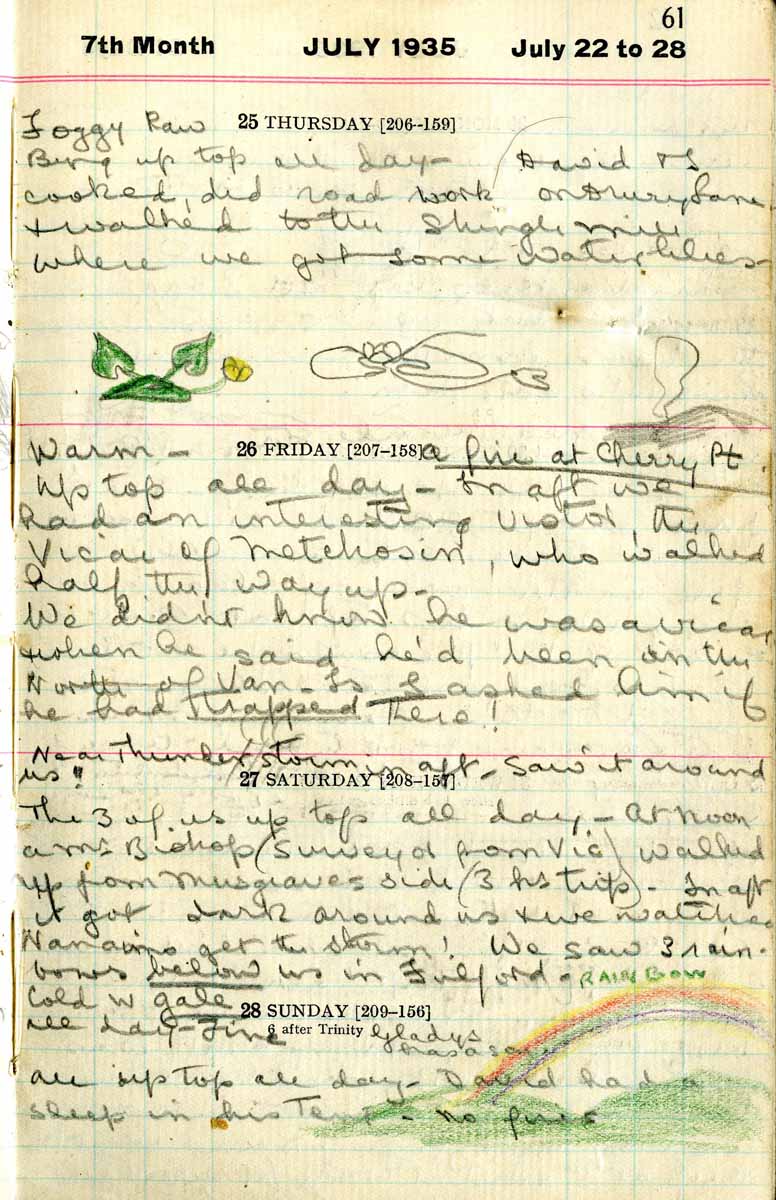 61
7th Month JULY 1935 July 22 to 28
Foggy Raw 25 THURSDAY [206--159]
up top all day - David & I
cooked, did road work on Drury Lane,
& walked to the Shingle mill
where we got some Waterlilies -
Warm - 26 FRIDAY [207-158] a fire at Cherry Pt
Up top all day - In aft we
had an interesting Visitor, the
Vicar of Metchosin, who walked
half the way up -
We didn't know he was a vicar
& when he said he'd been in the
North of Van - Is I asked him if
he had trapped There!
Near Thunder storm in aft - Saw it around
us!! 27 SATURDAY [208-157]
The 3 of us up top all day - At Noon
a Mr Bishop (Surveyor from Vic) walked
up from Musgraves side (3 hs trip) - In aft
it got dark around us & we watched
Nanaimo get the storm! We saw 3 rain-
bows below us in Fulford - RAINBOW
Cold W gale 28 SUNDAY [209-156]
all day - Fine 6 after Trinity Gladys
has a
all up top all day - David had a
sleep in his Tent - no fires